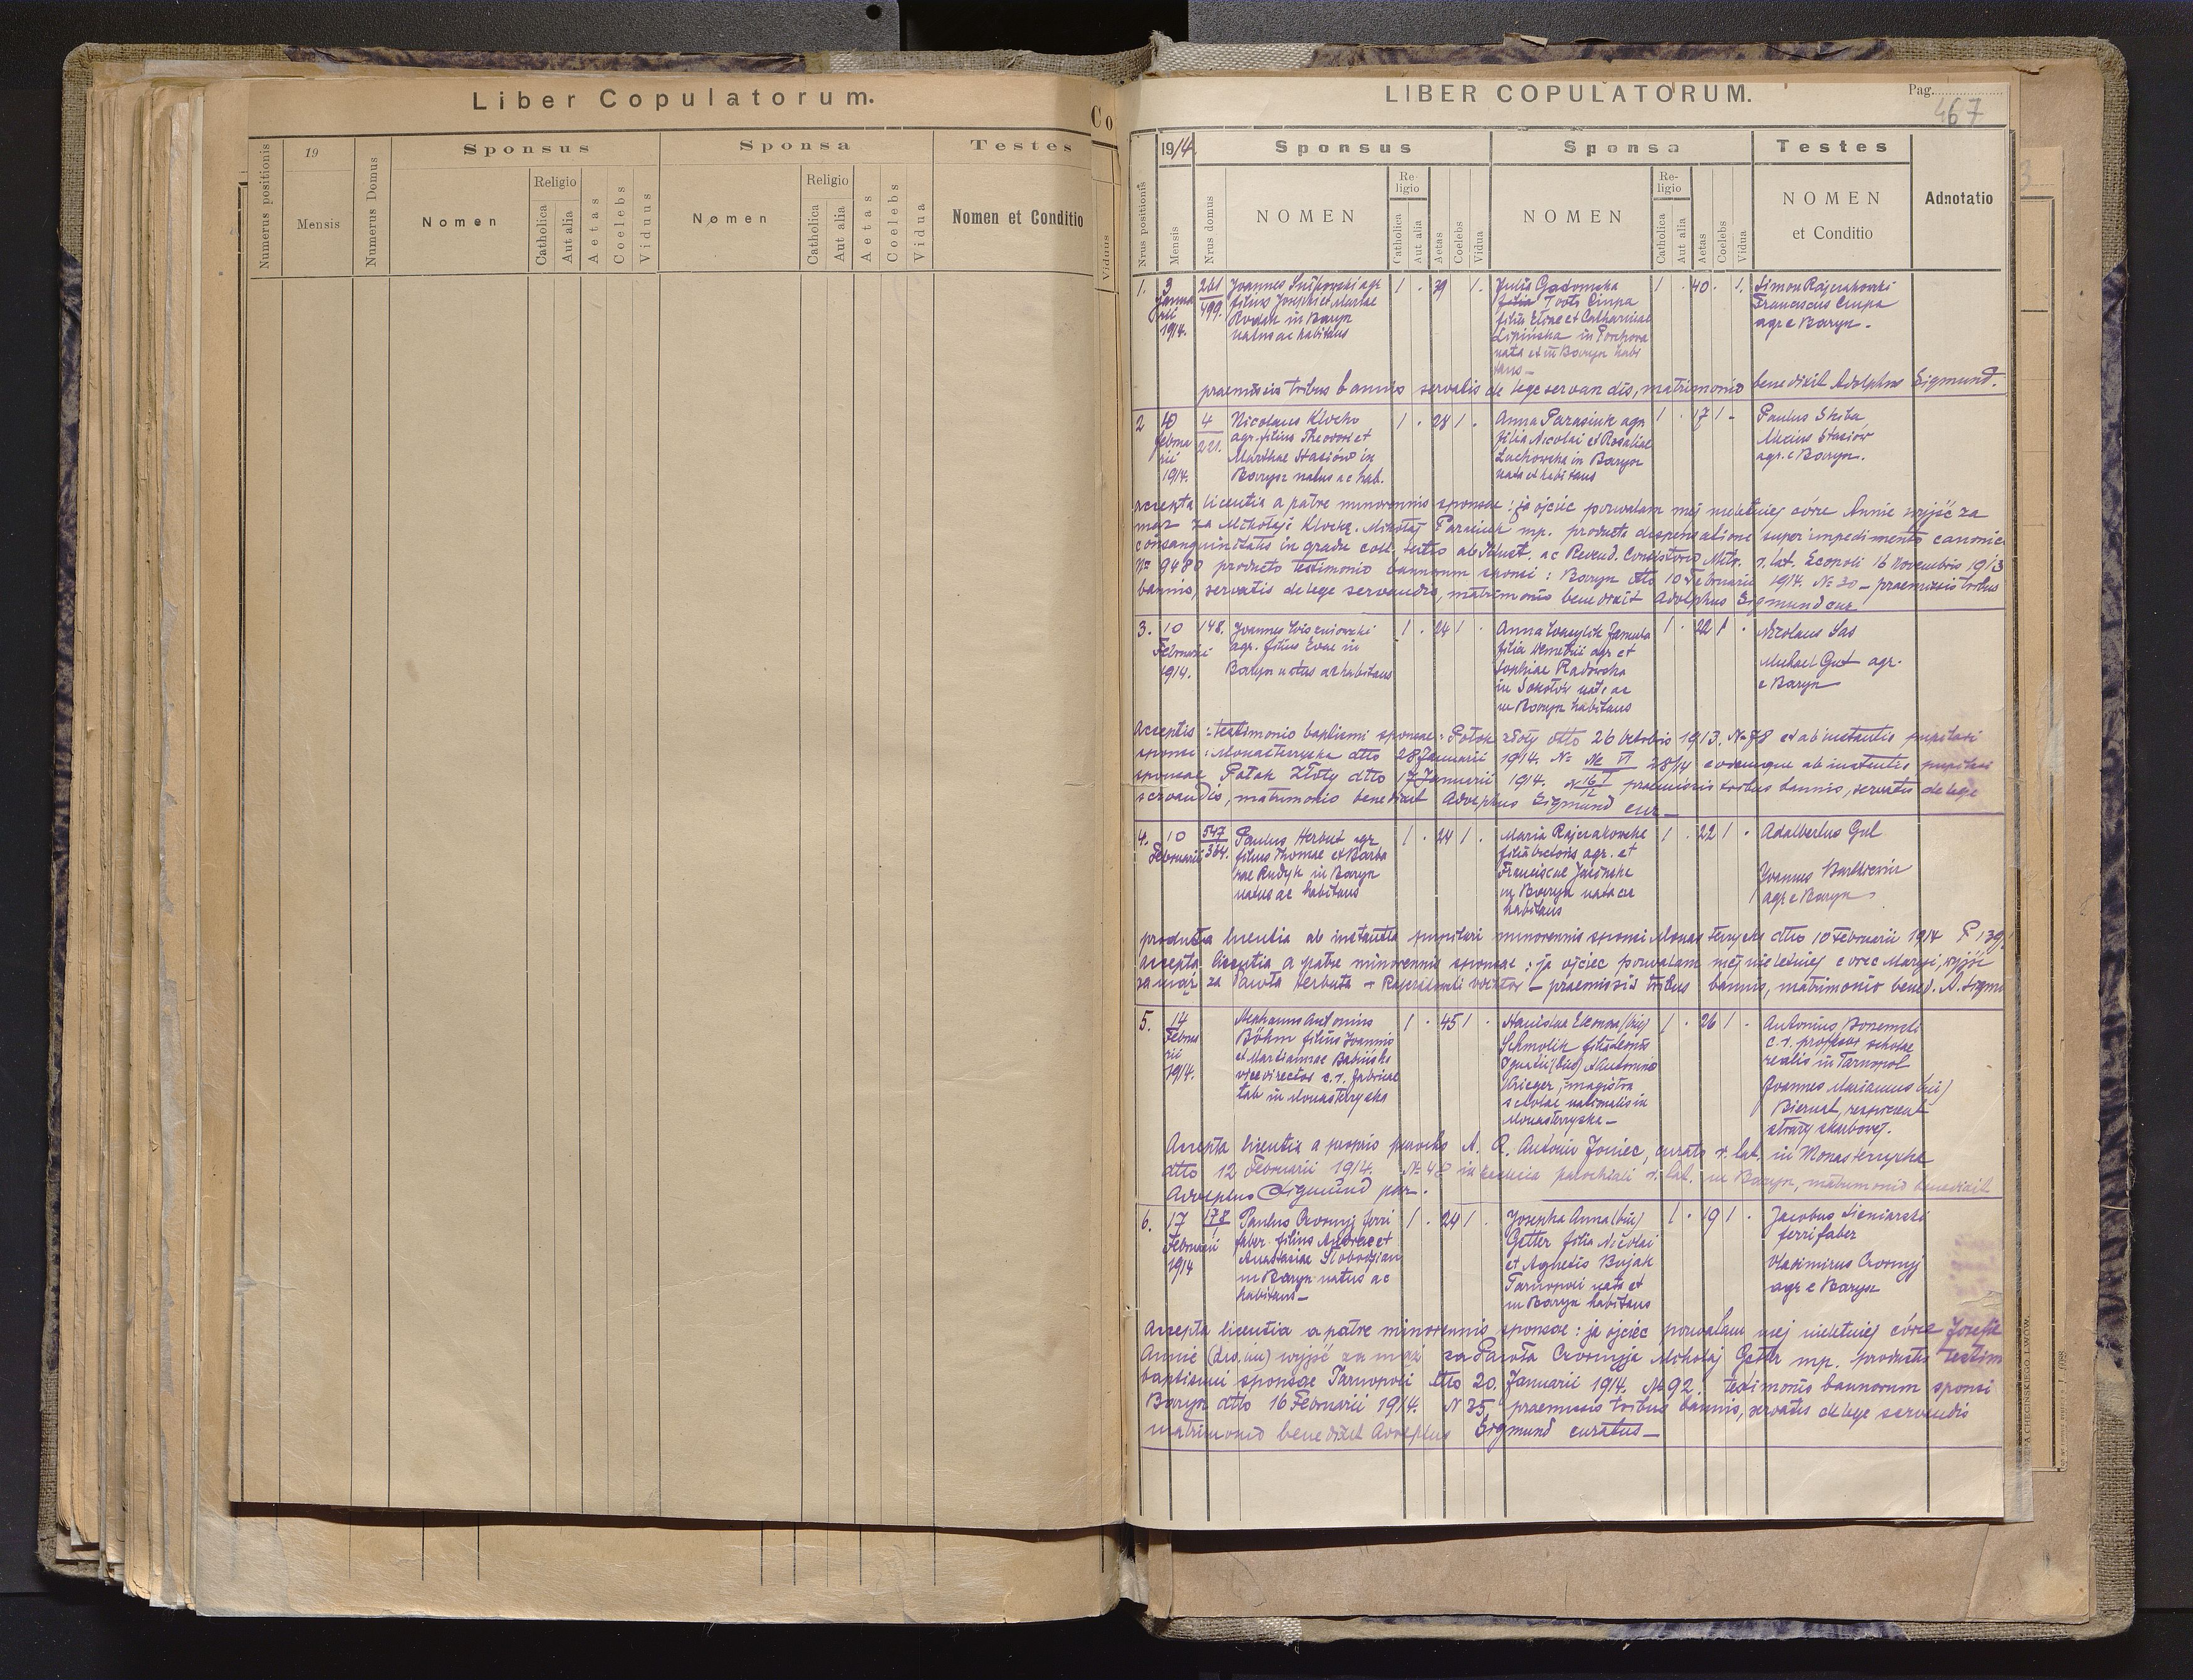 Liber Copulatorum.
Co
Numerus positionis
19
Mensis
Numerus Domus
Sponsus
Nomen
Religio
Catholica
Aut alia
Aetas
Coelebs
Viduus
Sponsa
Nomen
Religio
Catholica
Aut alia
Aetas
Coelebs
Vidua
Testes
Nomen et Conditio
Viduus
LIBER COPULATORUM.
Pag.
467
Nrus positionis
1914
Mensis
Nrus domus
Sponsus
NOMEN
Re-
ligio
Catholica
Aut alia
Aetas
Coelebs
Vidua
Sponsa
NOMEN
Re-
ligio
Catholica
Aut alia
Aetas
Coelebs
Vidua
Testes
NOMEN
et Conditio
Adnotatio
1.
3
Janua
rii
1914.
261
499.
Joannes agr
filius Josephi et Mariae
Rudyk in Barysz
natus ac habitans
1 . 39 1.
Julia Gadomska
filia Ciupa
filia Eliae et Catharinae
Lipińska in
nata et in Barysz habi
tans
1 . 40 . 1.
Simon Rajczakowski
Franciscus Ciupa
agr e Barysz.
praemissis tribus bannis servatis de lege servandis, matrimonio benedixit Adolphus Sigmund.
2
10
februa
rii
1914.
4
221.
Nicolaus Klocko
agr. filius Theodori et
Marthae Stasiów in
Barysz natus ac hab.
1 . 28 1 .
Anna Parasiuk agr
filia Nicolai et Rosaliae
Luchowska in Barysz
nata et habitans
1 . 17 1 -
Paulus Skiba
Stasiów
agr. e Barysz.
accepta licentia a patre minorennis sponsae: ja ojciec pozwalam mej nieletniej córce Annie wyjść za
mąż za Mikołaja Klocka. Mikołaj Parasiuk mp. producta dispensatione super impedimento canonico
consanguinitatis in gradu coll. tertio ab Illust. ac Reverd. Consistorio Metr. r. lat. Leopoli 16 Novembris 1913
No 9480 producto testimonio bannorum sponsi: Barysz dtto 10 Februarii 1914. No 30 - praemissis tribus
bannis, servatis de lege servandis, matrimonio benedixit Adolphus Sigmund cur
3.
10
Februarii
1914.
148.
Joannes Wiszniowski
agr. filius Evae in
Barysz natus ac habitans
1 . 24 1 .
Anna Wasylik famula
filia Demetrii agr et
Sophiae Radowska
in Sokołów nata ac
in Barysz habitans
1 . 22 1 .
Nicolaus Sas
Michael Gut agr.
e Barysz
Acceptis: testimonio baptismi sponsae: Potok złoty dtto 26 Octobris 1913. No 78 et ab instantia pupilari
sponsi: Monasterzyska dtto 28 Januarii 1914. No VI 28/14 eodemque ab instantia pupilari
sponsae Potok Złoty dtto 17 Januarii 1914. praemissis tribus bannis, servatis de lege
servandis, matrimonio benedixit Adolphus Sigmund cur
4.
10
Februarii
547
364.
Paulus Herbut agr
filius Thomae et Barba
rae Rudyk in Barysz
natus ac habitans
1 . 24 1 .
Maria Rajczakowska
filia Victoris agr. et
Franciscae Jasińska
in Barysz nata ac
habitans
1 . 22 1 .
Adalbertus Gul
Joannes Bartkiewicz
agr e Barysz
producta licentia ab instantia pupilari minorennis sponsi Monasterzyska dtto 10 Februarii 1914 P 139/
accepta licentia a patre minorennis sponsae: ja ojciec pozwalam mej nieletniej córce Maryi, wyjść
za mąż za Pawła Herbuta - Rajczakowski Wiktor - praemissis tribus bannis, matrimonio bened. A. Sigmu
5.
14
Februa
rii
1914.
Stephanus Antonius
Böhm filius Joannis
et Mariannae Babińska
vicedirector c. r. fabricae
tab in Monasterzyska
1 . 45 1 .
Stanislaa Eleonora (bin)
Schmolik filia Leonis
Ignatii (bin) et Antoninae
Krieger, magistra
scholae nationalis in
Monasterzyska
1 . 26 1 .
Antonius
c. r. professor scholae
realis in Tarnopol
Joannes Marianus (bin)
Biernat, respicient
straży skarbowej.
Accepta licentia a proprio parocho A. R. Antonio Joniec, curato r. lat. in Monasterzyska
dtto 12 Februarii 1914. No 48 in ecclesia parochiali r. lat. in Barysz, matrimonio benedixit
Adolphus Sigmund par.
6.
17
Februarii
1914
178
Paulus Czornyj ferri
faber filius Andreae et
Anastasiae Slobodzian
in Barysz natus ac
habitans
1 . 24 1 .
Josepha Anna (bin)
Getter filia Nicolai
et Agnetis Bujak
Tarnopoli nata et
in Barysz habitans
1 . 19 1 .
Jacobus Sieniarski
ferrifaber
Vladimirus Czornyj
agr e Barysz
Accepta licentia a patre minorennis sponsae: ja ojciec pozwalam mej nieletniej córce Józefie
Annie (dw. im) wyjść za mąż za Pawła Czornyja Mikołaj Getter mp. productis testim
baptismi sponsae Tarnopoli dtto 20. Januarii 1914. No 92. testimonio bannorum sponsi
Barysz dtto 16 Februarii 1914. N 35, praemissis tribus bannis, servatis de lege servandis
matrimonio benedixit Adolphus Sigmund curatus